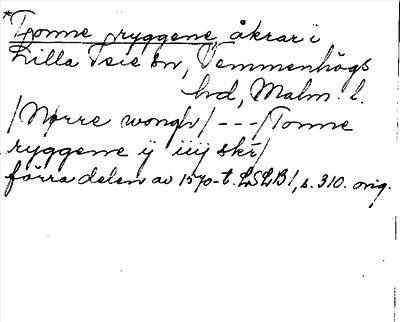 *Tonne ryggene, åkrar i
Lilla                 sn, Vemmenhögs
hd, Malm. l.
/Nørre wongh/ - - - /Tonne
ryggenne ij iiij skr/
förra delen av 1570-t. LSLB1, s. 310. orig.